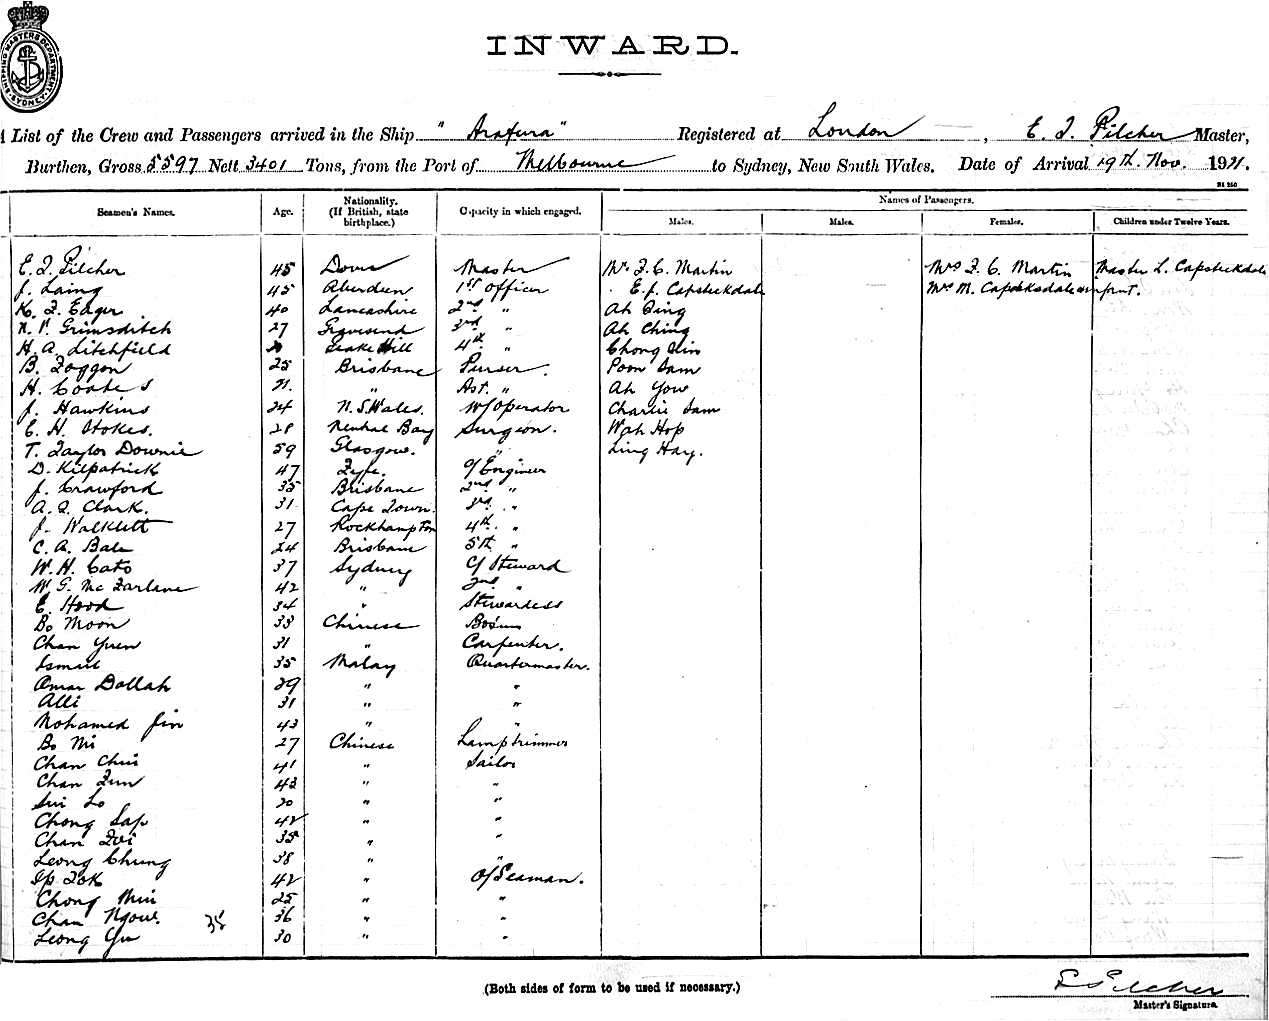 SHIPPING MASTERS DEPARTMENT SYDNEY
INWARD.
A List of the Crew and Passengers arrived in the Ship "Arafura" Registered at London, E. T. Pilcher Master,
Burthen, Gross 5597 Nett 3401 Tons, from the Port of Melbourne to Sydney, New South Wales. Date of Arrival 19th Nov. 1921.
Seamen's Names. Age. Nationality. (If British, state birthplace.) Capacity in which engaged. Names of Passengers.
Males. Males. Females. Children under Twelve Years.
E. T. Pilcher 45 Dover Master Mr. F. C. Martin Mrs F. C. Martin Master L. Capstickdale
J. Laing 45 Aberdeen 1st Officer " E. J. Capstickdale Mrs M. Capsticksdale infant.
K. F. Eager 40 Lancashire 2nd " Ah
N. V. Grimsditch 27 Gravesend 3rd " Ah Ching
H. A. Litchfield Hill 4th " Chong
B. Foggon 25 Brisbane Purser. Poon Sam
H. Coates 21. " Ast. " Ah You
J. Hawkins 24 N. S. Wales. W/Operator Charlie Sam
E. H. Stokes. 28 Neutral Bay Surgeon. Wah Hop
T. Taylor Downie 59 Glasgow. " Ling Hay.
D. Kilpatrick 47 Fyfe. C/Engineer
J. Crawford 35 Brisbane 2nd "
A. Q. Clark. 31 Cape Town. 3rd "
J. Walklett 27 Rockhampton 4th "
C. A. Bale 24 Brisbane 5th "
W. H. Cato 37 Sydney C/Steward
W. G. McFarlane 42 " 2nd "
E. Hood 34 " Stewardess
Bo Moon 33 Chinese Bosun
Chan Yuen 31 " Carpenter.
Ismail 35 Malay Quartermaster.
Omar Dollah 29 " "
Alli 31 " "
Mohamed Jin 43 " "
Bo Mi 27 Chinese Lamptrimmer
Chan Chui 41 " Sailor
Chan Fun 43 " "
Sui Lo 20 " "
Chong Sap 42 " "
Chan Foi 35 " "
Leong Chung 38 " "
Ip Fok 42 " O/Seaman.
Chong Min 25 " "
Chan Ngow. 36 " "
Leong Yu 30 " "
(Both sides of form to be used if necessary.)
E T Pilcher
Master's Signature.